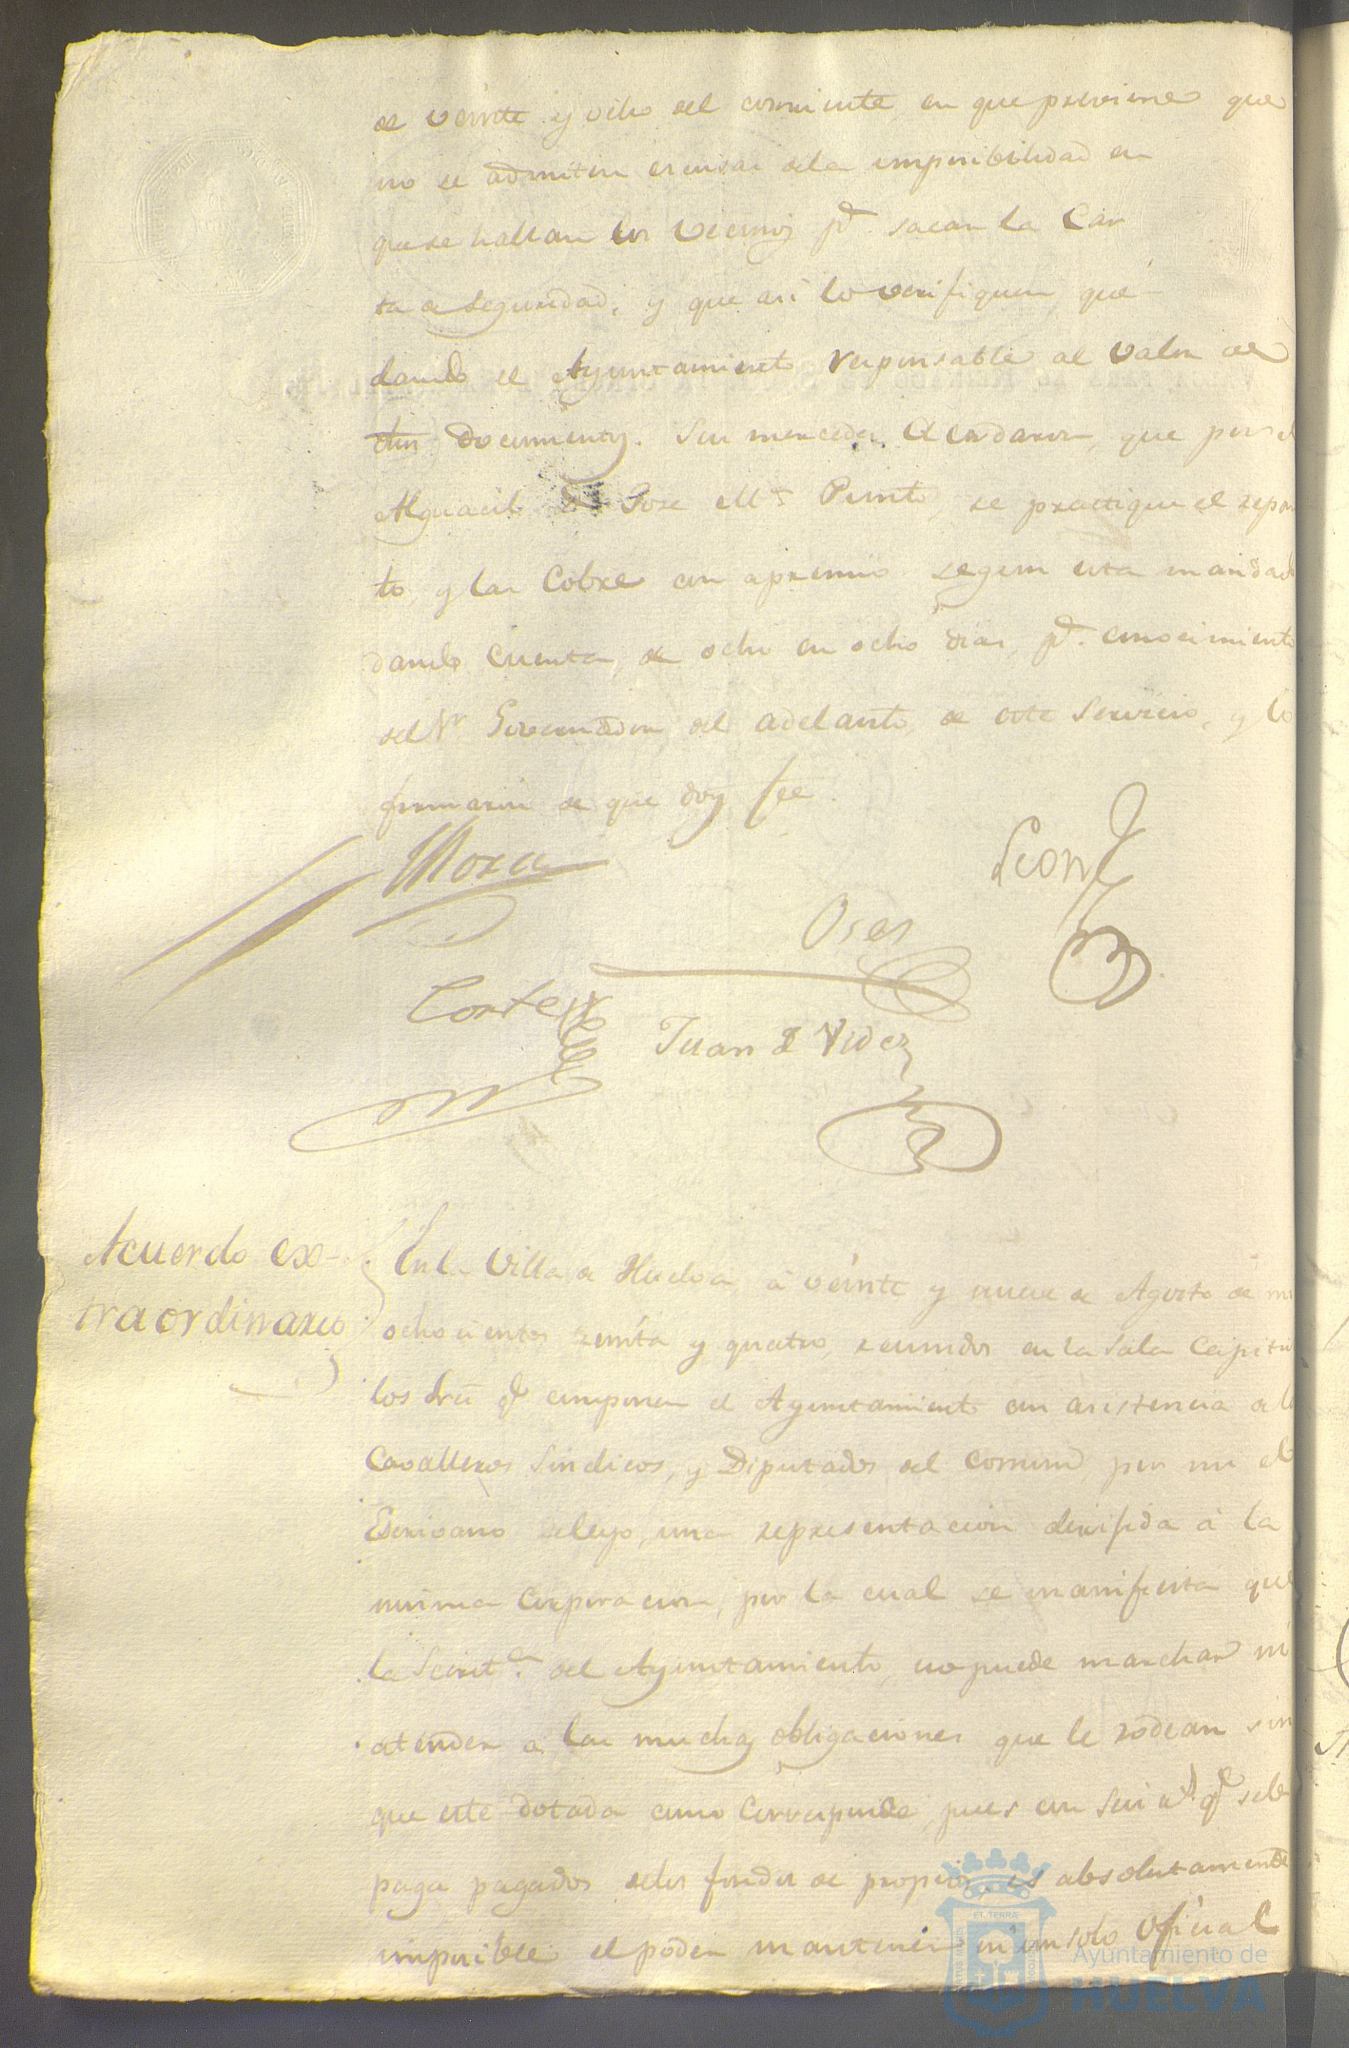 de veinte y ocho del corriente en que previene que
no se admiten escusas dela imposibilidad en
que se hallan los vecinos pª. sacar la Car
ta de seguridad, y que asi lo verifiquen, que
dando el Ayuntamiento responsable al valor de
dhos documentos. Sus mercedes Acordaron, que por el
Alguacil Dn Jose Mª Pinto, se practique el repar
to, y las cobre con apremio segun esta mandado
dando cuenta, de ocho en ocho dias, pª. conocimiento
del Sr. Governador del adelanto de este servicio, y lo
firmaron de que doy fee.
Mora
Leon
Oses
Cortes
Juan de Videz
Acuerdo ex-
traordinario
En la Villa de Huelva, á veinte y nueve de Agosto de mil
ochocientos treinta y quatro, reunidos en la Sala Capitu
los Sres qe componen el Ayuntamiento con asistencia de los
Cavalleros Sindicos, y Diputados del comun, por mi el
Escribano se leyo, una representacion dirifida á la
misma corporacion, por la cual se manifiesta que
la Secretª. del Ayuntamiento, no puede marchar ni
atender a las muchas obligaciones que le rodean sin
que este dotada como corresponde, pues con seis rs. qe se le
paga pagados delos fondos de propios, es absolutamente
imposible el poder mantener ni un solo oficial
ET TERRÆ
Ayuntamiento de
HUELVA